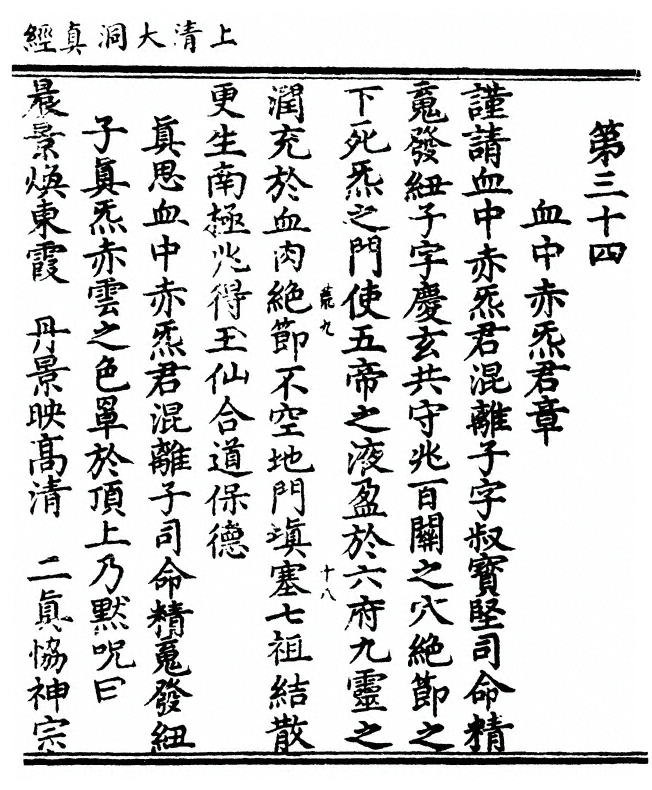 上清大洞真經
第三十四
血中赤炁君章
謹請血中赤炁君混離子字叔寶堅司命精
䰟發紐子字慶玄共守兆百關之穴絶節之
下死炁之門使五帝之液盈於六府九靈之
荒九
十八
潤充於血肉絶節不空地門塡塞七祖結散
更生南極兆得王仙合道保德
眞思血中赤炁君混離子司命精䰟發紐
子眞炁赤雲之色罩於頂上乃默呪曰
晨景煥東霞 丹景映髙清 二眞恊神宗